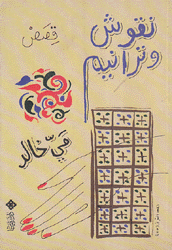 نقوش
وترانيم
قصص
مي خالد